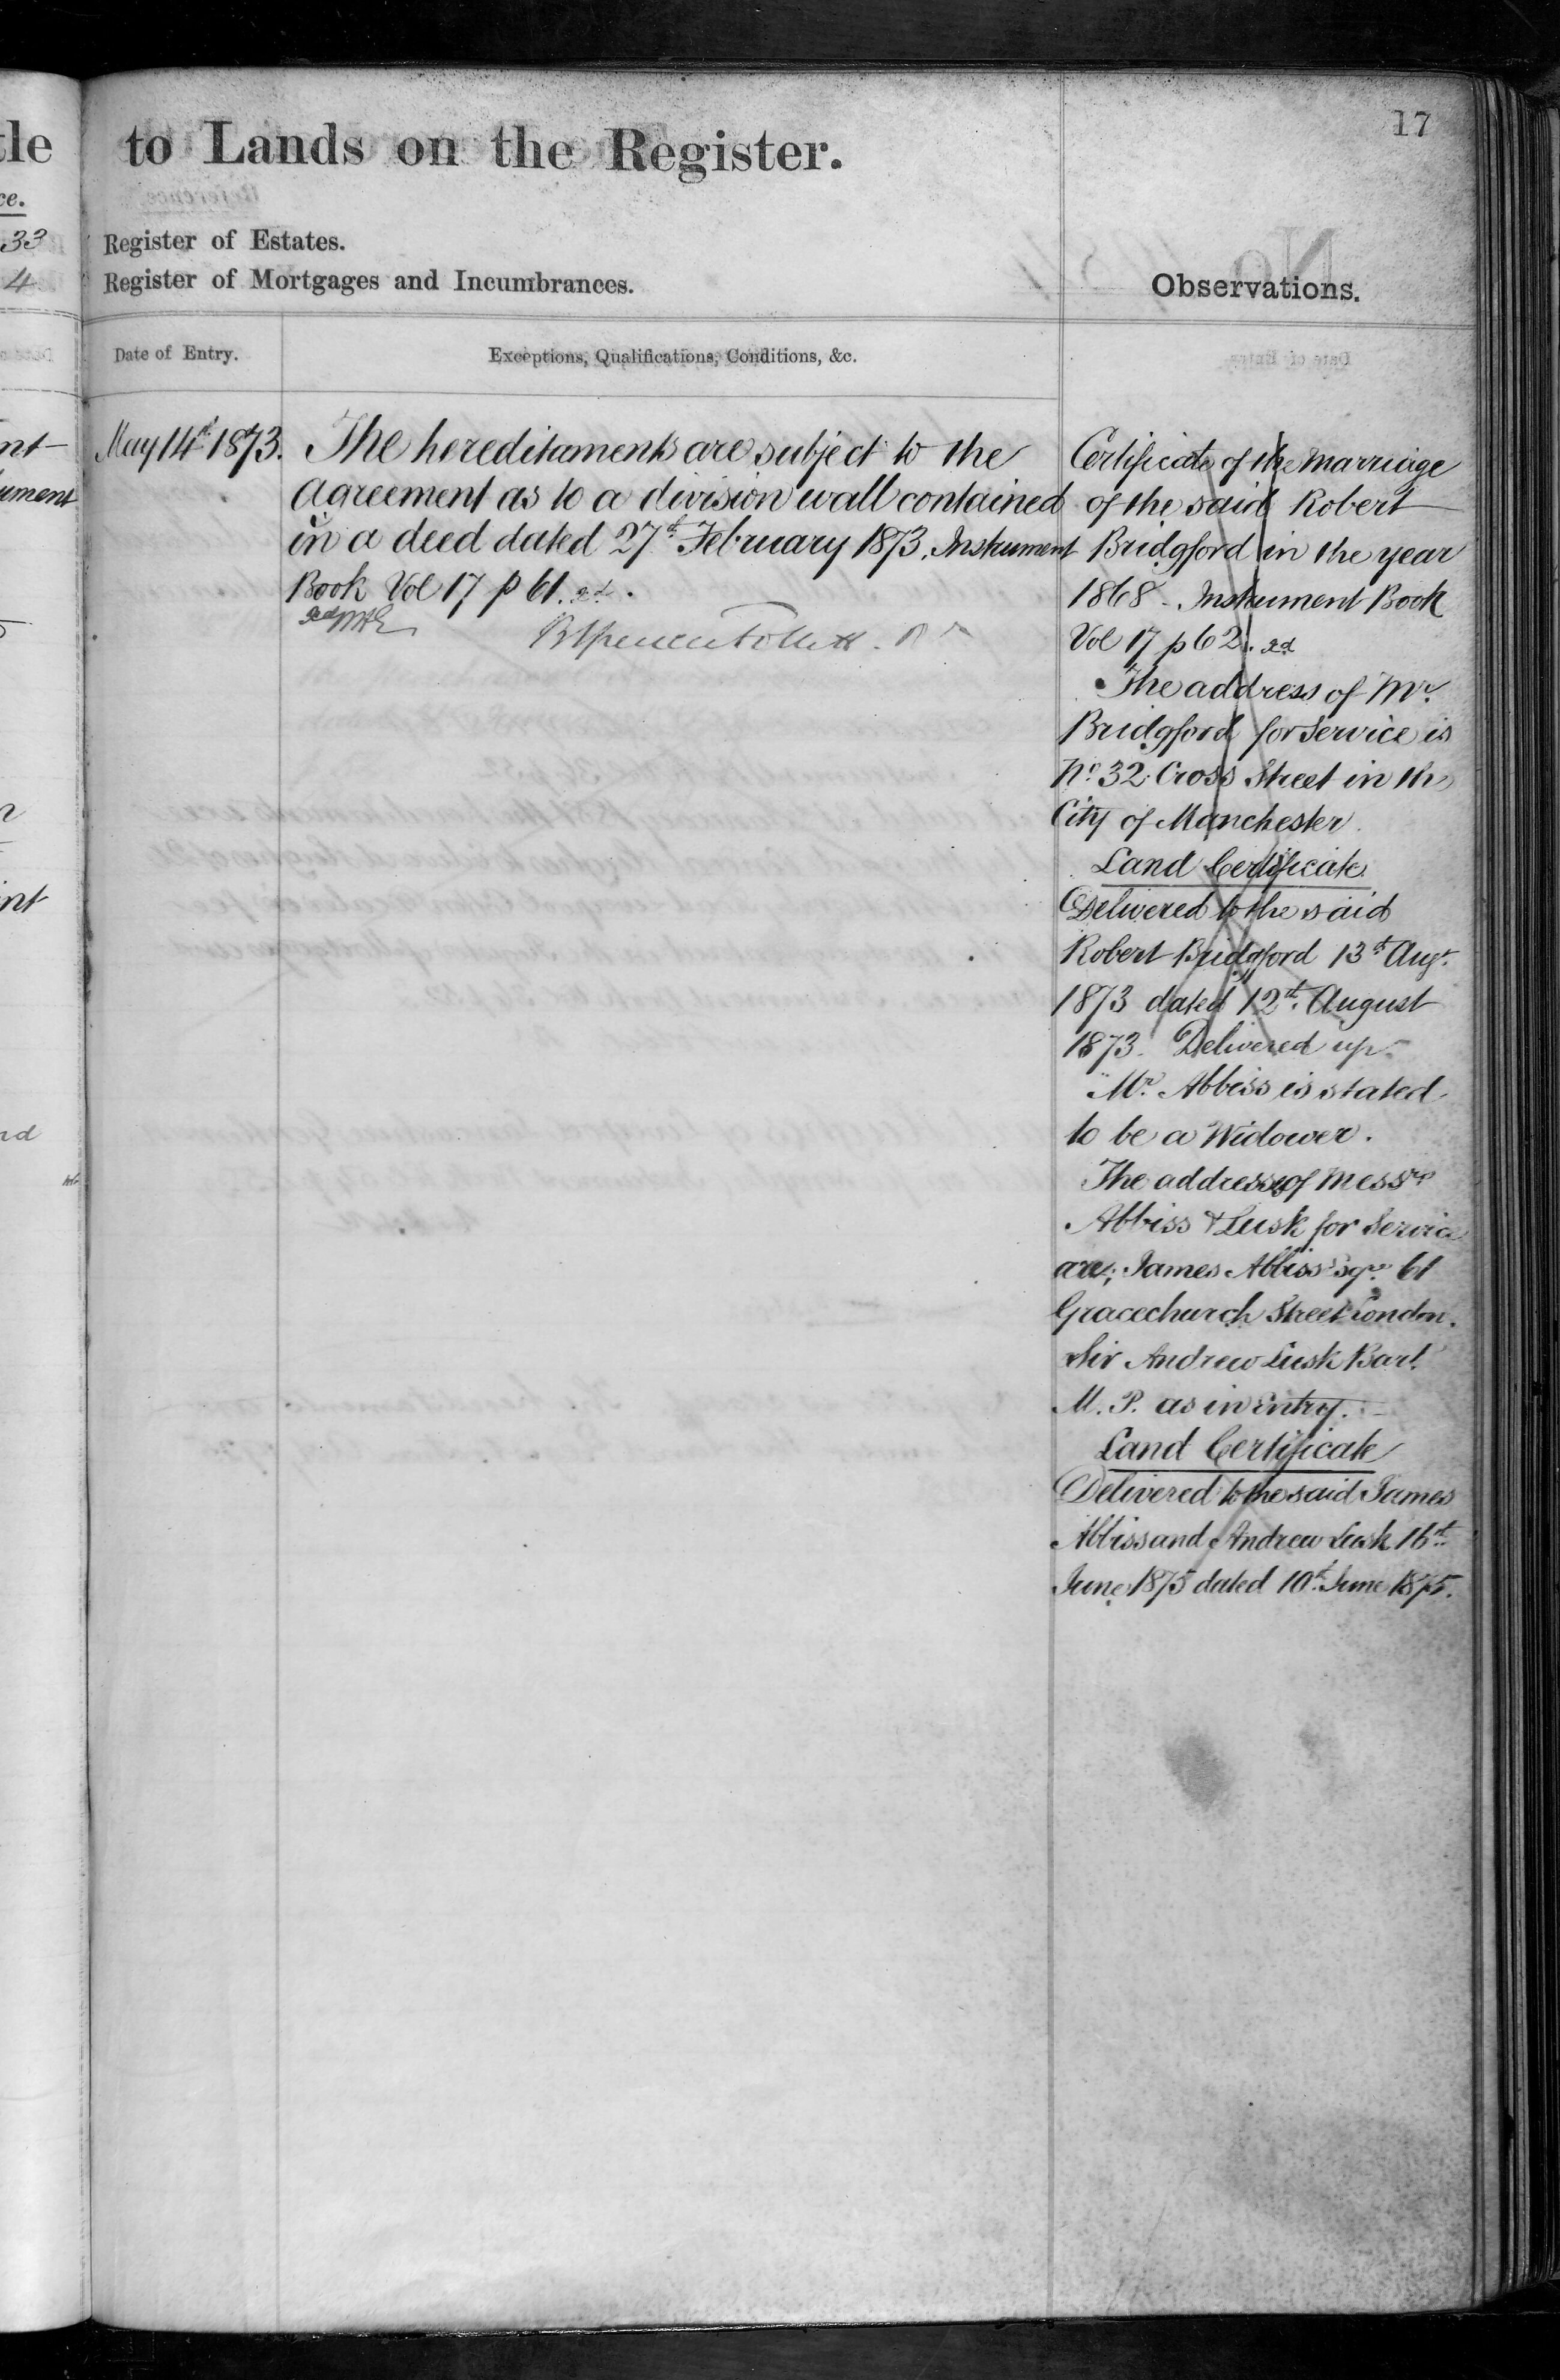 17
to Lands on the Register.
Register of Estates.
Register of Mortgages and Incumbrances.
Observations.
Date of Entry.
Exceptions, Qualifications, Conditions, &c.
May 14th 1873.
The hereditaments are subject to the
agreement as to a division wall contained
in a deed dated 27th February 1873. Instrument
Book Vol 17 p 61.
Certificate of the marriage
of the said Robert
Bridgford in the year
1868 - Instrument Book
Vol 17 p 62.
The address of Mr.
Bridgford for Service is
No. 32 Cross Street in the
City of Manchester
Land Certificate
Delivered to the said
Robert Bridgford 13th Augt.
1873 dated 12th August
1873. Delivered up.
Mr. Abbiss is stated
to be a Widower.
The addresses of Messrs
Abbiss & Lusk for Service
are; James Abbiss Esqre. 61
Gracechurch Street London.
Sir Andrew Lusk Bart.
M. P. as in Entry.
Land Certificate
Delivered to the said James
Abbiss and Andrew Lusk 16th
June 1875 dated 10th June 1875.